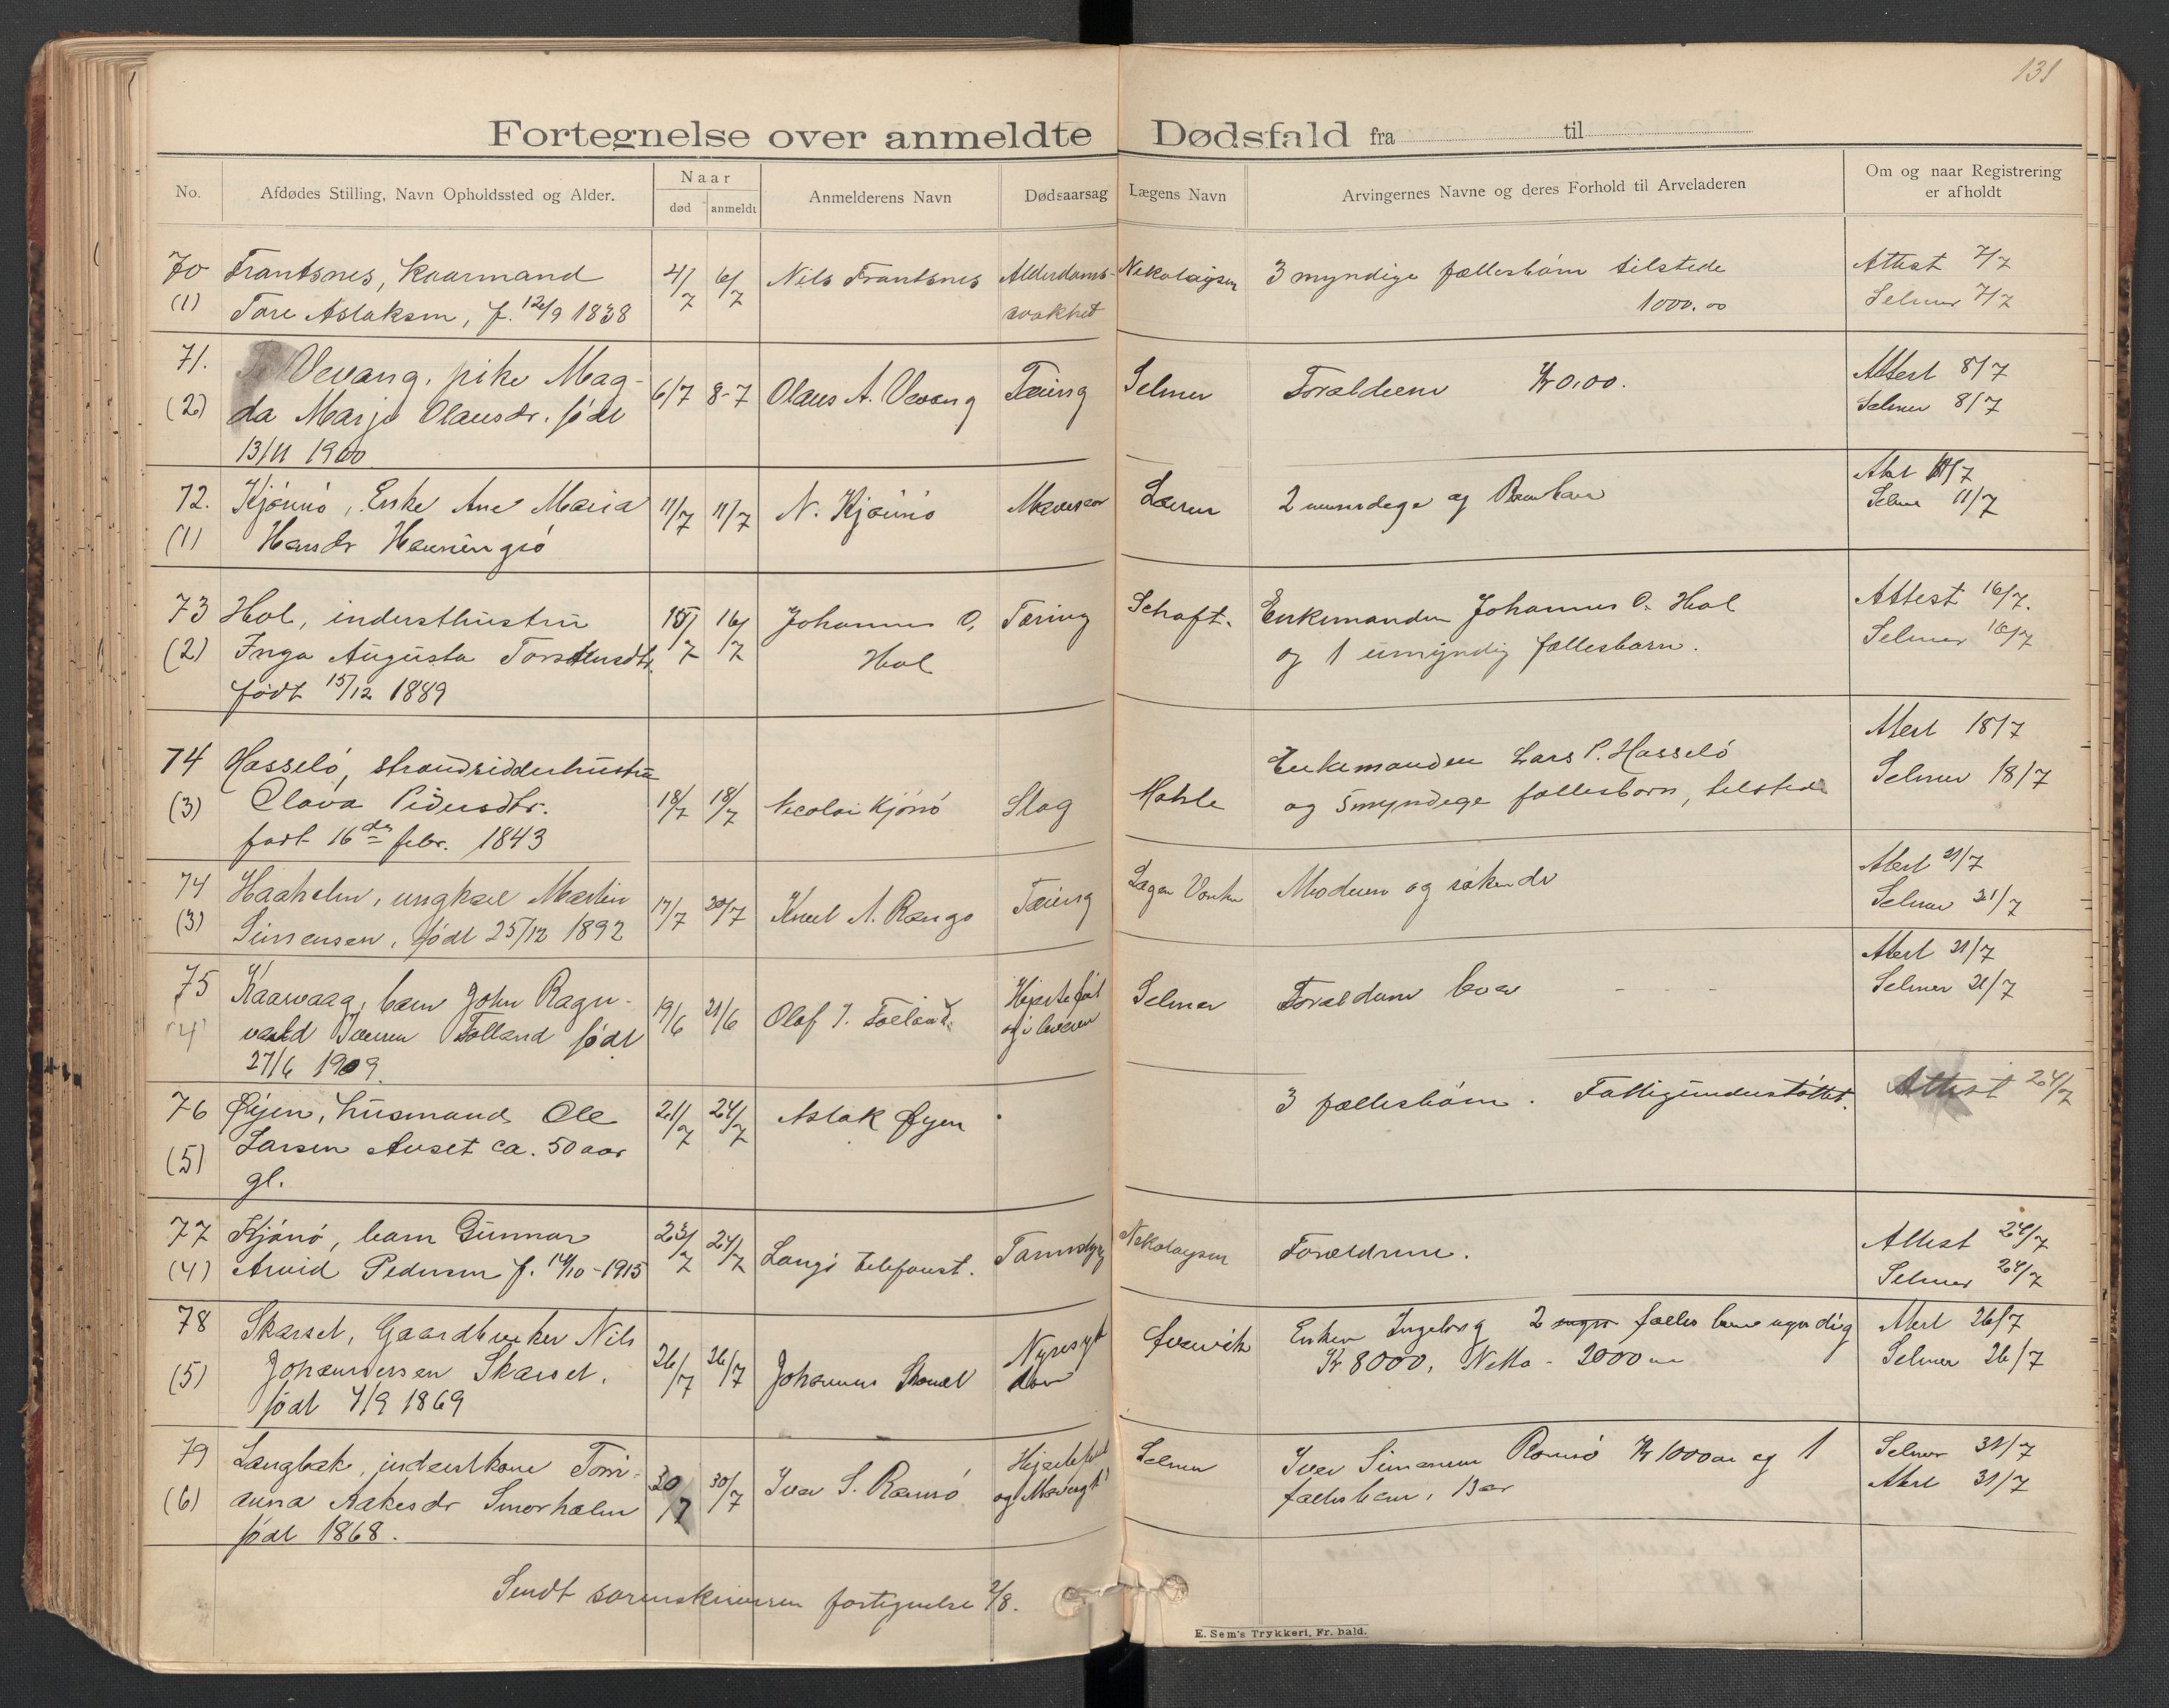 131
Fortegnelse over anmeldte Dødsfald fra til
No.
Afdødes Stilling, Navn Opholdssted og Alder.
Naar
død anmeldt
Anmelderens Navn
Dødsaarsag
Lægens Navn
Arvingernes Navne og deres Forhold til Arveladeren
Om og naar Registrering
er afholdt
70 Frantsnes, Kaarmand 4/7 6/7 Nils Frantsnes Alderdoms- Nikolaysen 3 myndige fællesbørn tilstede Attest 7/7
(1) Tore Aslaksen, f. 12/9 1838 svakhet 1000.00 Selmer 7/7
71. Vevang, pike Mag- 6/7 8-7 Olaus A. Vevang Tæring Selmer Forældrene Kr 0.00. Attest 8/7
(2) da Marje Olausdr. født Selmer 8/7
13/11 1900
72. Kjönnö, Enke Ane Maria 11/7 11/7 N. Kjönnö Lærer 2 og Attest 11/7
(1) Hansdr Henningsö Selmer 11/7
73 Hol, indersthustru 15/7 16/7 Johannes O. Tæring Schaft. Enkemanden Johannes O. Hol Attest 16/7.
(2) Inga Augusta Torstensdtr. Hol og 1 umyndig fællesbarn. Selmer 16/7
født 15/12 1889
74 Hasselö, strandsidderhustru 18/7 18/7 Nicolai Kjönnö Slag Mohle Enkemanden Lars P. Hasselö Attest 18/7
(3) Olava Pedersdtr. og 5 myndige fællesbørn, tilstede Selmer 18/7
født 16de febr. 1843
74 Haaholm, ungkar Martin 17/7 20/7 Knut A. Rangø Tæring Moderen og søkende Attest 21/7
(3) Simensen, født 25/12 1892 Selmer 21/7
75 Kaarvaag, barn John Ragn- 19/6 21/6 Olaf J. Folland Hjertefeil Selmer Forældrene lever - - - Attest 21/7
(4) vald Iversen Folland født og i Selmer 21/7
27/6 1909.
76 Øyen, husmand Ole 21/7 24/7 Aslak Øyen 3 fællesbörn. Fattigunderstöttet. Attest 24/7
(5) Larsen Auset ca. 50 aar
gl.
77 Kjönö, barn Gunnar 23/7 24/7 Langö telefonst. Nikolaysen Forældrene. Attest 24/7
(4) Arvid Pedersen f. 14/10-1915 Selmer 24/7
78 Skarset, Gaardbruker Nils 26/7 26/7 Johannes Skarset Nyresyk Enken Ingeborg 2 fælles barn uyndig Attest 26/7
(5) Johannessen Skarset, dom Kr 8000, Netto - 2000 Selmer 26/7
født 4/9 1869
79 Langbak, inderstkone Tomi- 30/7 30/7 Iver S. Ramsö Hjertefeil Selmer Iver Simensen Ramsö Kr 1000 og 1 Selmer 31/7
(6) anna Aakesdr Smorholm og fællesbarn, 13 aar Attest 31/7
født 1868.
Sendt sorenskriveren fortegnelse 2/8.
E. Sem's Trykkeri, Fr. hald.